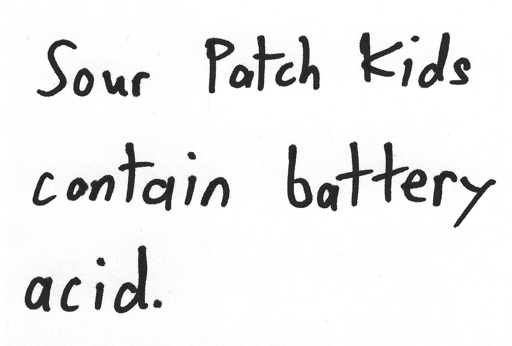 Sour Patch Kids
contain battery
acid.